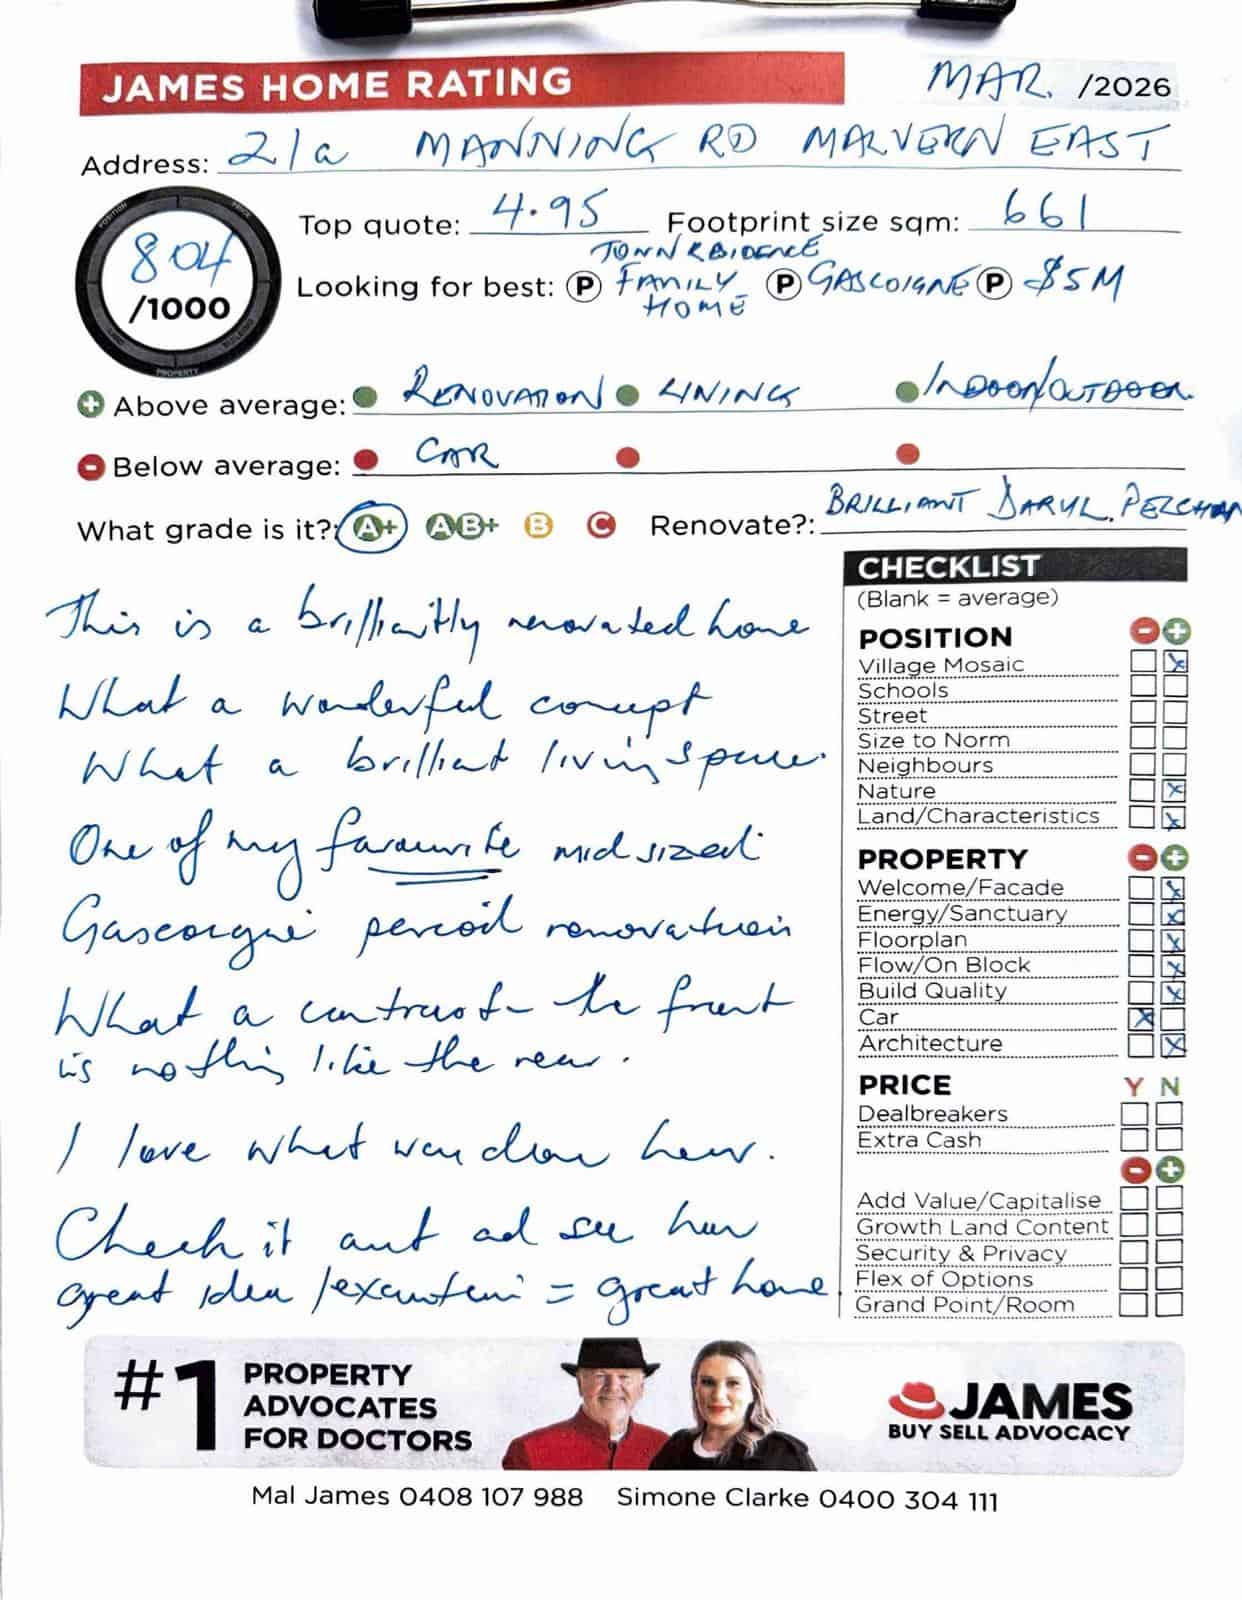 JAMES HOME RATING
MAR. /2026
Address: 21a MANNING RD MALVERN EAST
804
/1000
POSITION
PRICE
LAND
BUILDING
PROPERTY
Top quote: 4.95 Footprint size sqm: 661
TOWN RESIDENCE
Looking for best: P FAMILY P GASCOIGNE P $5M
HOME
Above average: RENOVATION LININGS INDOOR/OUTDOOR
Below average: CAR
What grade is it?: A+ AB+ B C Renovate?: BRILLIANT DARYL PELCHEN
This is a brilliantly renovated home
What a wonderful concept
What a brilliant living space.
One of my favourite mid sized
Gascoigne period renovation
What a contrast - the front
is nothing like the rear.
I love what was done here.
Check it out ad see how
great idea/execution = great home
CHECKLIST
(Blank = average)
POSITION - +
Village Mosaic x
Schools
Street
Size to Norm
Neighbours
Nature x
Land/Characteristics x
PROPERTY - +
Welcome/Facade x
Energy/Sanctuary x
Floorplan x
Flow/On Block x
Build Quality x
Car x
Architecture x
PRICE Y N
Dealbreakers
Extra Cash
- +
Add Value/Capitalise
Growth Land Content
Security & Privacy
Flex of Options
Grand Point/Room
#1 PROPERTY
ADVOCATES
FOR DOCTORS
JAMES
BUY SELL ADVOCACY
Mal James 0408 107 988 Simone Clarke 0400 304 111